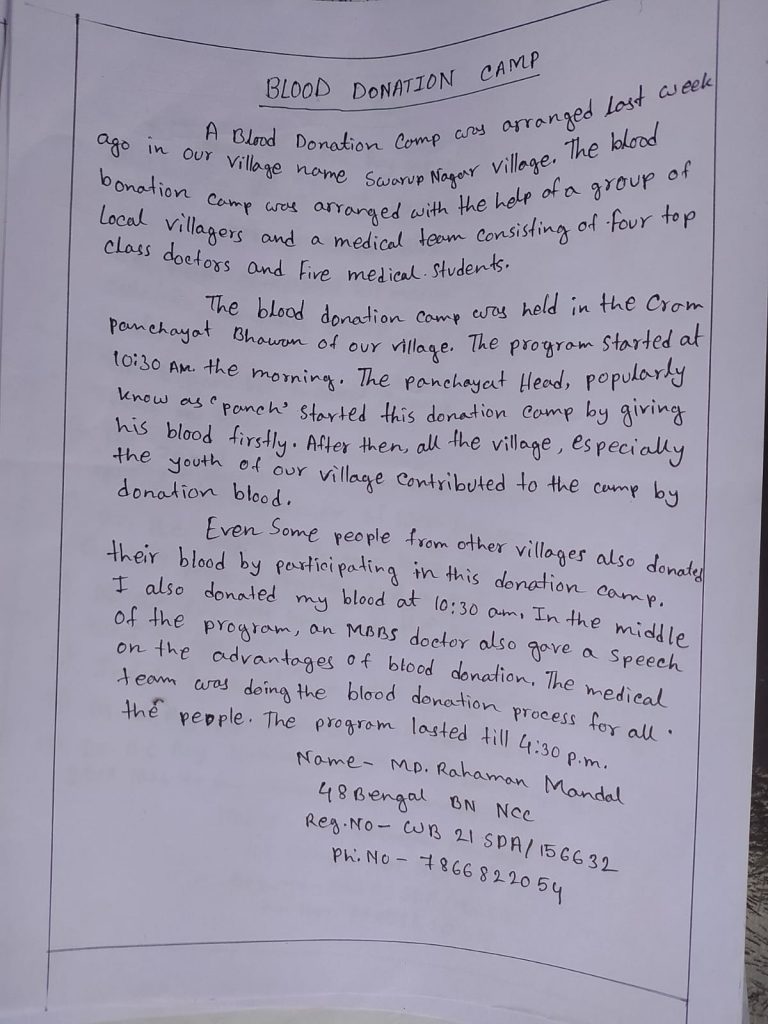 BLOOD DONATION CAMP
A Blood Donation Camp was arranged last week
ago in our village name Swarup Nagar village. The blood
bonation camp was arranged with the help of a group of
Local villagers and a medical team consisting of four top
class doctors and five medical students.
The blood donation camp was held in the Gram
panchayat Bhawan of our village. The program started at
10:30 AM the morning. The panchayat Head, popularly
know as "panch" started this donation camp by giving
his blood firstly. After then, all the village, especially
the youth of our village contributed to the camp by
donation blood.
Even Some people from other villages also donated
their blood by participating in this donation camp.
I also donated my blood at 10:30 am. In the middle
of the program, an MBBS doctor also gave a speech
on the advantages of blood donation. The medical
team was doing the blood donation process for all
the people. The program lasted till 4:30 p.m.
Name- MD. Rahaman Mandal
48 Bengal BN NCC
Reg. No- WB 21 SDA/156632
Ph. No - 7866822054